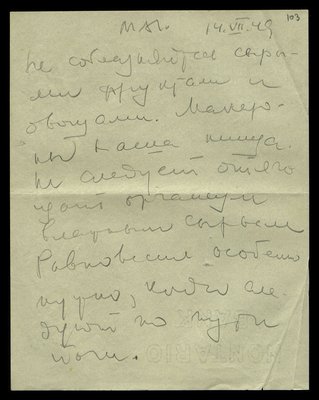 М.М. 14.VII.49 103
не соблазняйтесь сыры-
ми фруктами и
овощами. Макаро-
ны каша пища.
Не следует отяго
щать организм
влажным сырьем
Равновесие особенно
нужно, когда сле-
дуют по пути
йоги.
ONTARIO